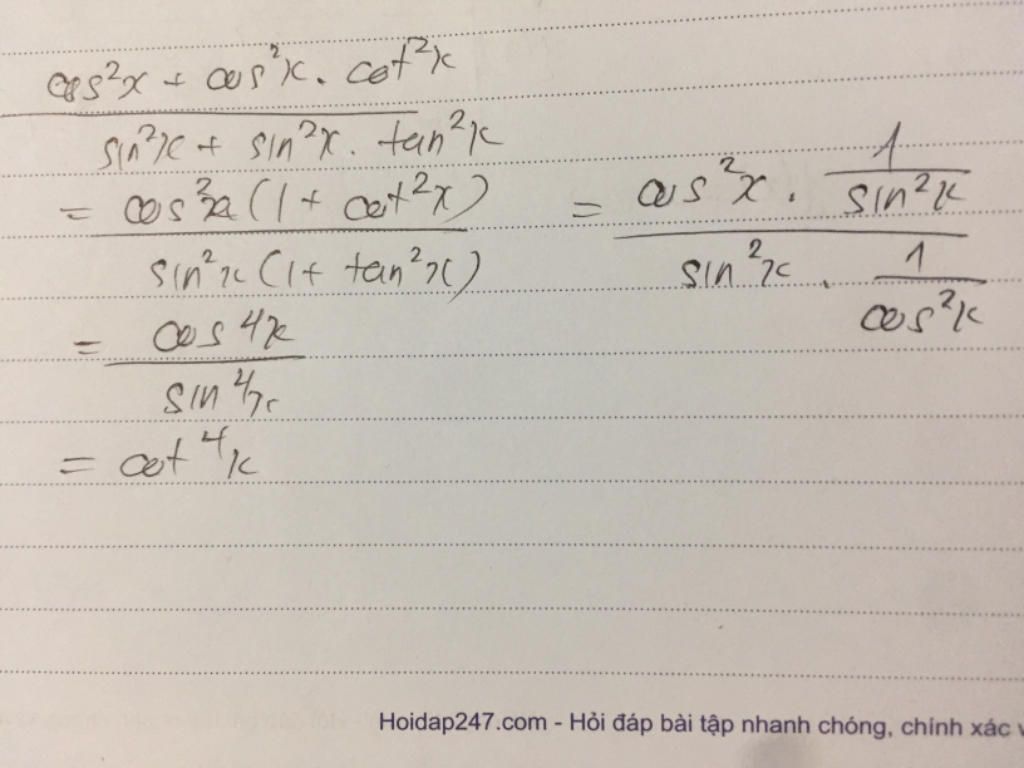 cos²x + cos²x . cot²x
sin²x + sin²x . tan²x
= cos²x (1 + cot²x)
sin²x (1 + tan²x)
= cos²x . 1
sin²x
sin²x . 1
cos²x
= cos⁴x
sin⁴x
= cot⁴x
Hoidap247.com - Hỏi đáp bài tập nhanh chóng, chính xác